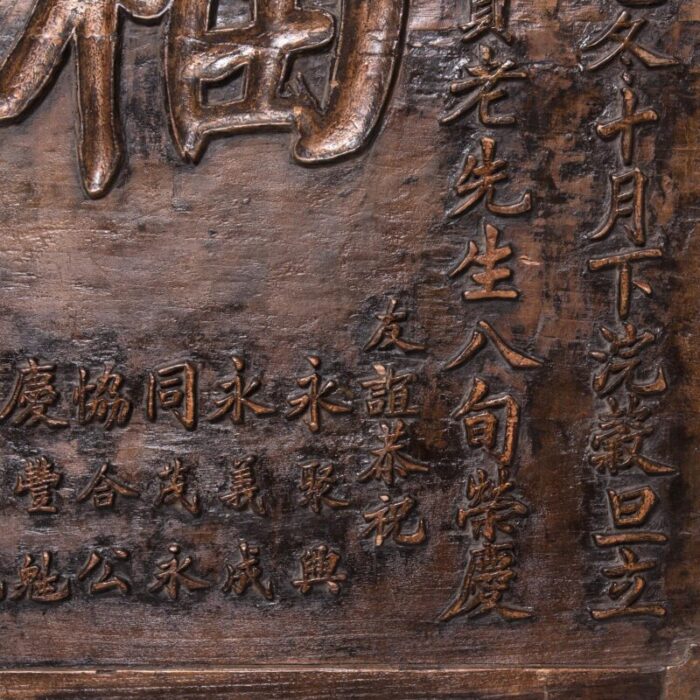 冬十月下浣穀旦立
老先生八旬榮慶
友誼恭祝
永聚興
永義成
同茂永
協合公
慶豐
福